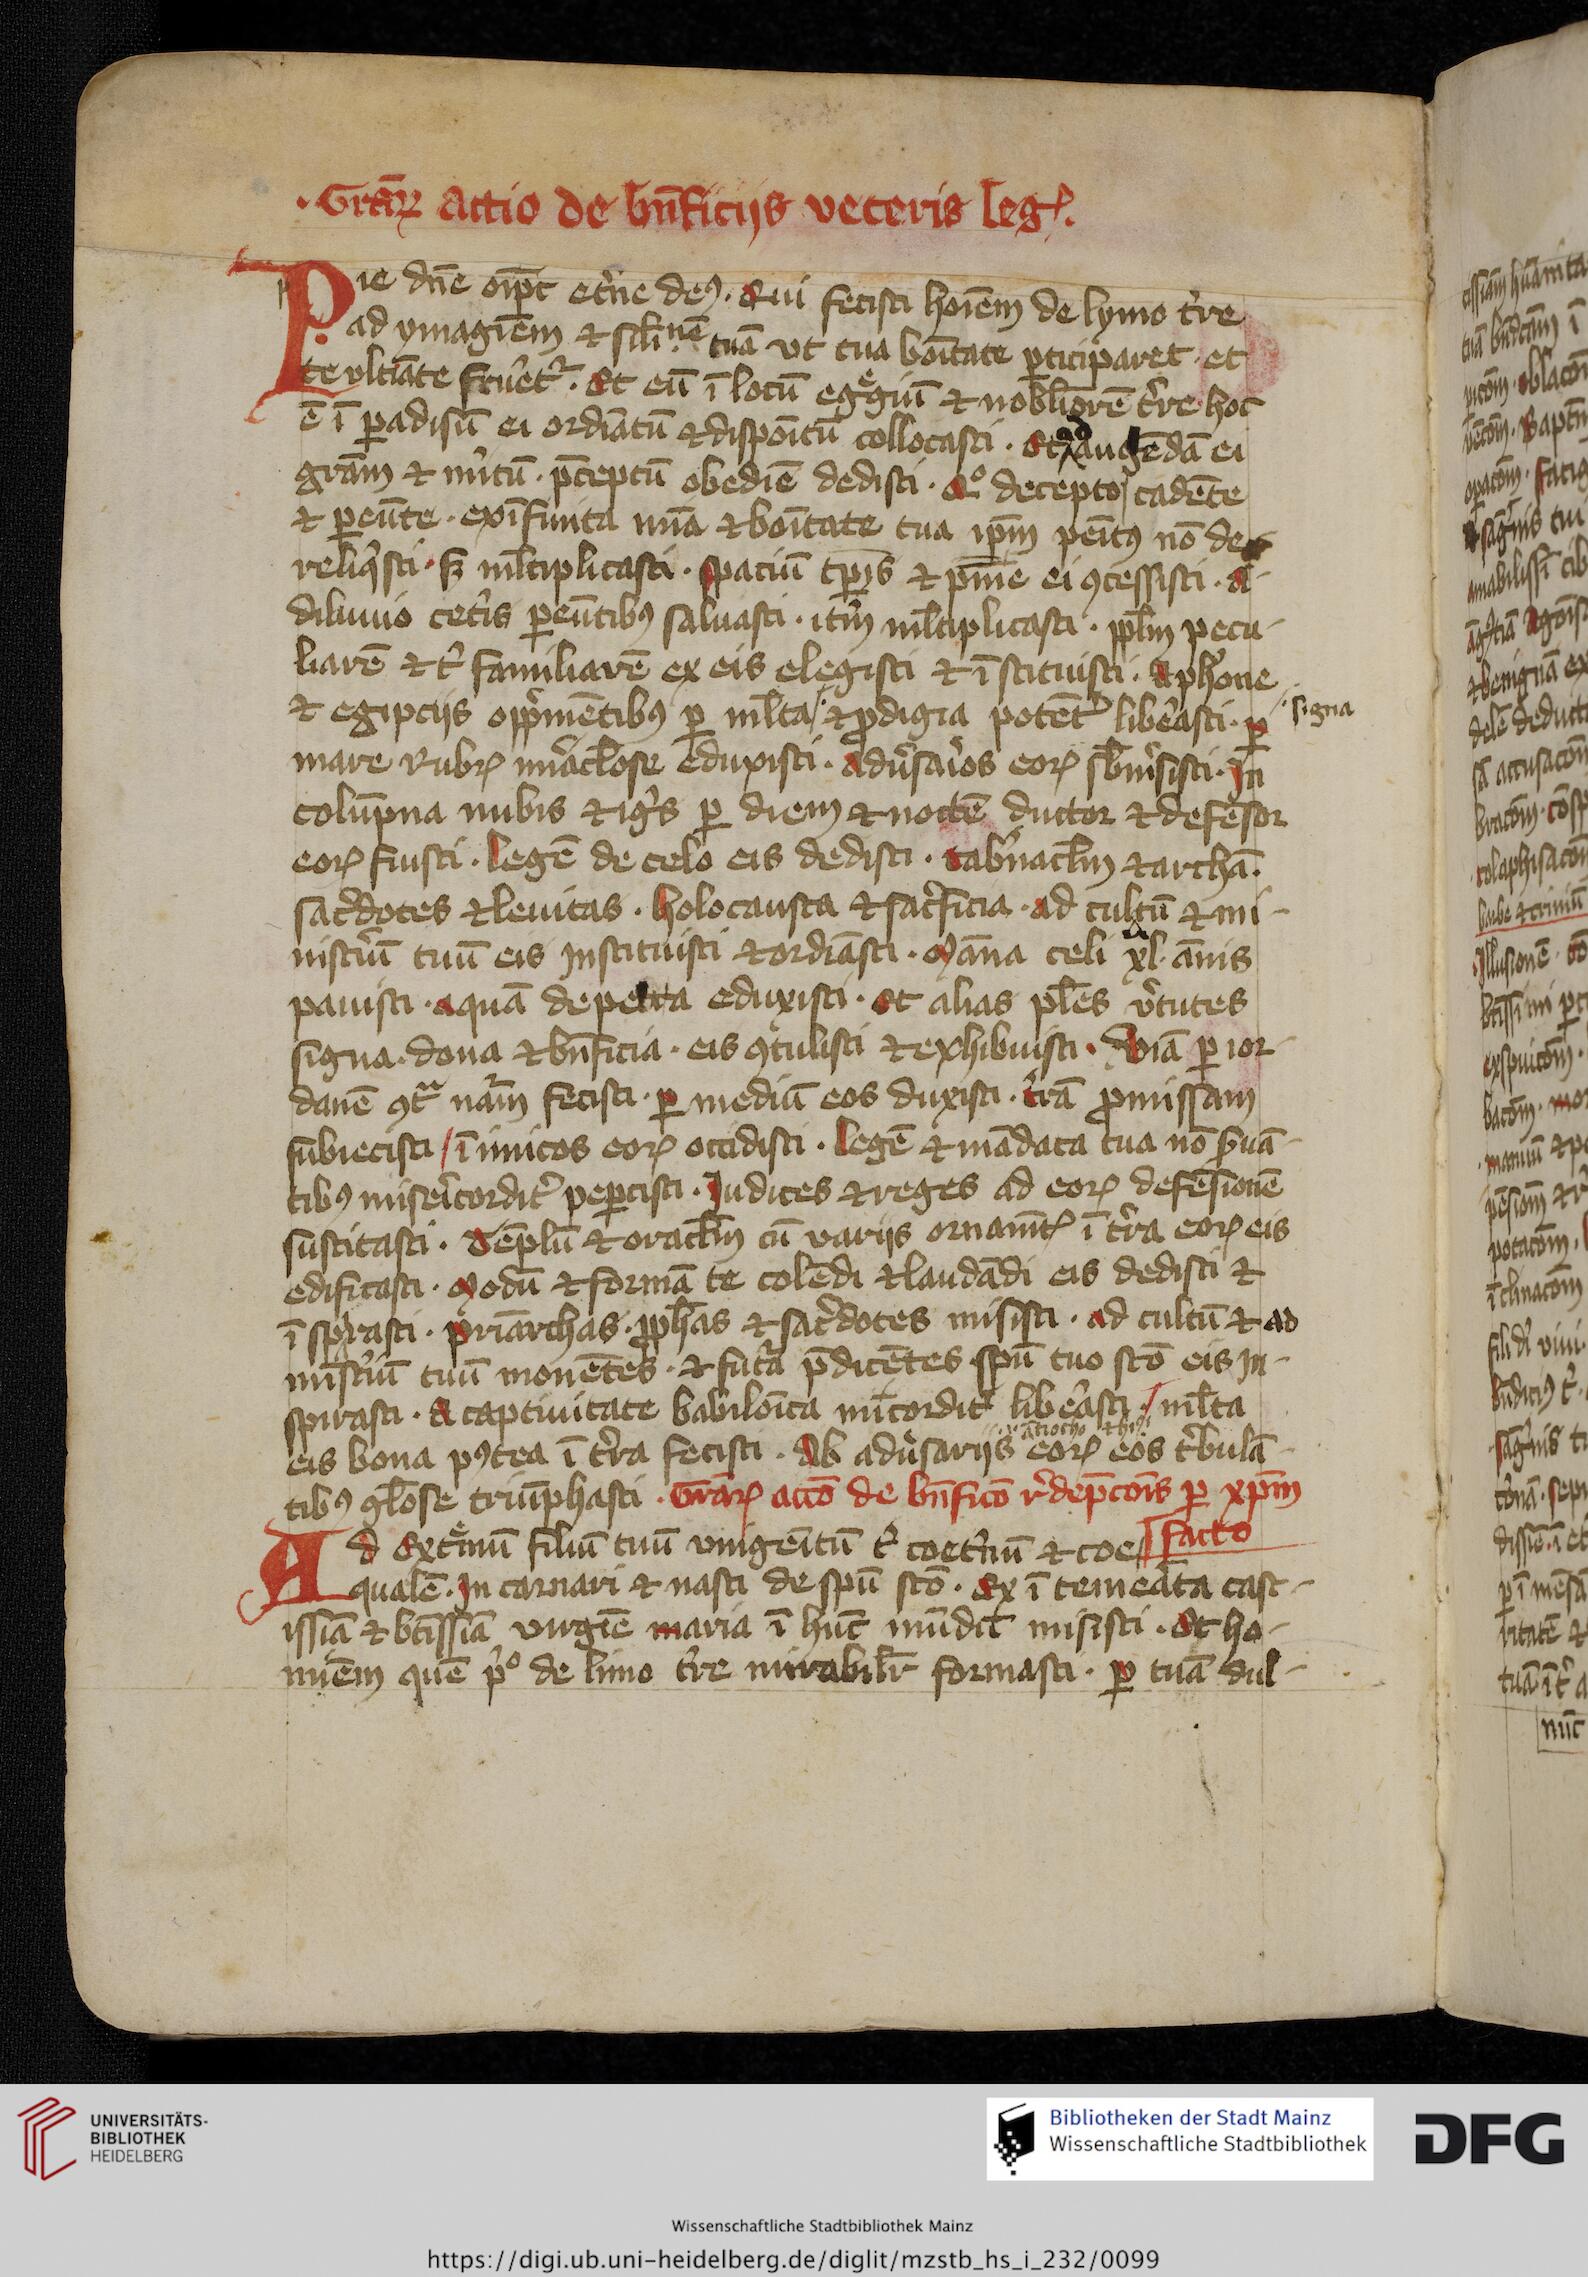 · Grār̄ actio de bn̄ficijs veteris leg̛ ·
Pie dn̄e oīpt̄ et̛ne deꝰ · Qui fecisti hoīem de lymo t̛re
ad ymagīem ⁊ sil̄inē tuā vt tua boītate ꝑticiparet · et
te vltīate fruēt᷑ · Et eū ī locū egᵉgiū ⁊ nobl̄iorē t̛re hoc
ē ī ꝑadisū ei ordīatū ⁊ dispoītū collocasti · Et ad augēdā ei
grām ⁊ m̛itū · p̄ceptū obediē dedisti · Qͦ decepto / cadēte
⁊ ꝑeūte · ex īfinita mīa ⁊ boītate tua ip̄m peītꝰ nō de
reliq̛sti · sꝫ ml̄tiplicasti · spaciū tp̄is ⁊ pn̄ie ei ꝯcessisti · a
diluuio cet̛is ꝑeūtibꝰ saluasti · it̛m ml̄tiplicasti · ppl̄m pecu-
liarē ⁊ t̛ familiarē ex eis elegisti ⁊ īstituisti · A pha̛one
⁊ egipcijs opp̛mētibꝰ ꝑ ml̄ta ⁊ ꝓdigia potēt̛ libe̛asti · ꝑ
signa
mare rubrꝝ mi̛acl̄ose eduxisti · adưsa̛ios eorꝝ sb̄m̛sisti · In
colūpna nubis ⁊ ig̛s ꝑ diem ⁊ noctē ductor ⁊ defēsor
eorꝝ fuisti · legē de celo eis dedisti · tab̛nacl̄m ⁊ archā ·
sac̛dotes ⁊ leuitas · holocausta ⁊ sac̛ficia · ad cultū ⁊ mi-
nist̛iū tuū eis Instituisti ⁊ ordīasti · Māna celi xl · ānis
pauisti · aquā de petra eduxisti · et alias pl̄es v̛tutes
signa · dona ⁊ bn̄ficia · eis ꝯtulisti ⁊ exhibuisti · viā ꝑ ior-
danē ꝯtᵃ nāꝛm fecisti · ꝑ mediū eos duxisti · t̛rā ꝓmissam
subiecisti / īimicos eorꝝ occidisti · legē ⁊ mādata tua nō s̛uā-
tibꝰ mise̛icordit̛ peꝑcisti · Iudices ⁊ reges ad eorꝝ defēsionē
suscitasti · Tēplū ⁊ oracl̄m cū varijs ornamt̛ ī t̛ra eorꝝ eis
edificasti · Modū ⁊ formā te colēdi ⁊ laudādi eis dedisti ⁊
īspirasti · p̛riarchas · ꝓph̄as ⁊ sac̛dotes misisti · ad cultū ⁊ ad
mīst̛iū tuū monētes · ⁊ fut̛a p̄dicētes spū tuo scō eis In-
spirasti · A captiuitate babiloīca mīcordit̛ libe̛asti / ml̄ta
eis bona pꝰtea ī t̛ra fecisti · Ab adưsarijs eorꝝ eos t̛bulā-
tibꝰ gl̄ose triūphasti · Grārꝝ acc̄o de bn̄fic̄o r̛dep̄cōis ꝑ xp̄m
facto
Ad extᵉmū filiū tuū vnigeītū t̛ coet̛nū ⁊ coe
qualē · In carnari ⁊ nasci de spū scō · Ex ītemeᵃta cast-
issīa ⁊ btīssīa virgīe maria ī hūc mūdū misisti · Et ho-
minēm quē p̛ͦ de limo t̛re mirabilr̄ formasti · ꝑ tuā dul-
UNIVERSITÄTS-
BIBLIOTHEK
HEIDELBERG
Bibliotheken der Stadt Mainz
Wissenschaftliche Stadtbibliothek
DFG
Wissenschaftliche Stadtbibliothek Mainz
https://digi.ub.uni-heidelberg.de/diglit/mzstb_hs_i_232/0099